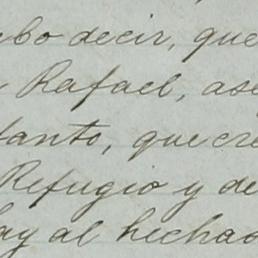 ebo decir, que
Rafael, ase
tanto, que cre
Refugio y de
hay al hechas